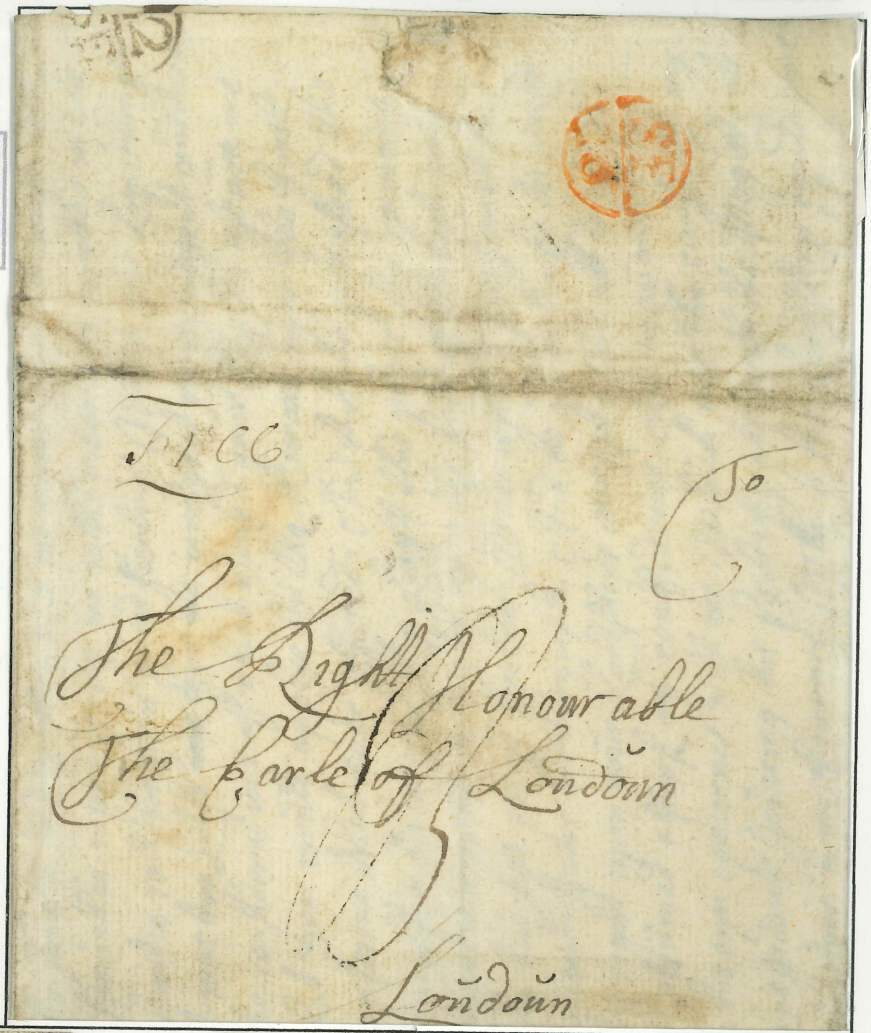 SE
Free
To
The Right Honourable
The Earle of Loŭdoun
Loŭdoŭn